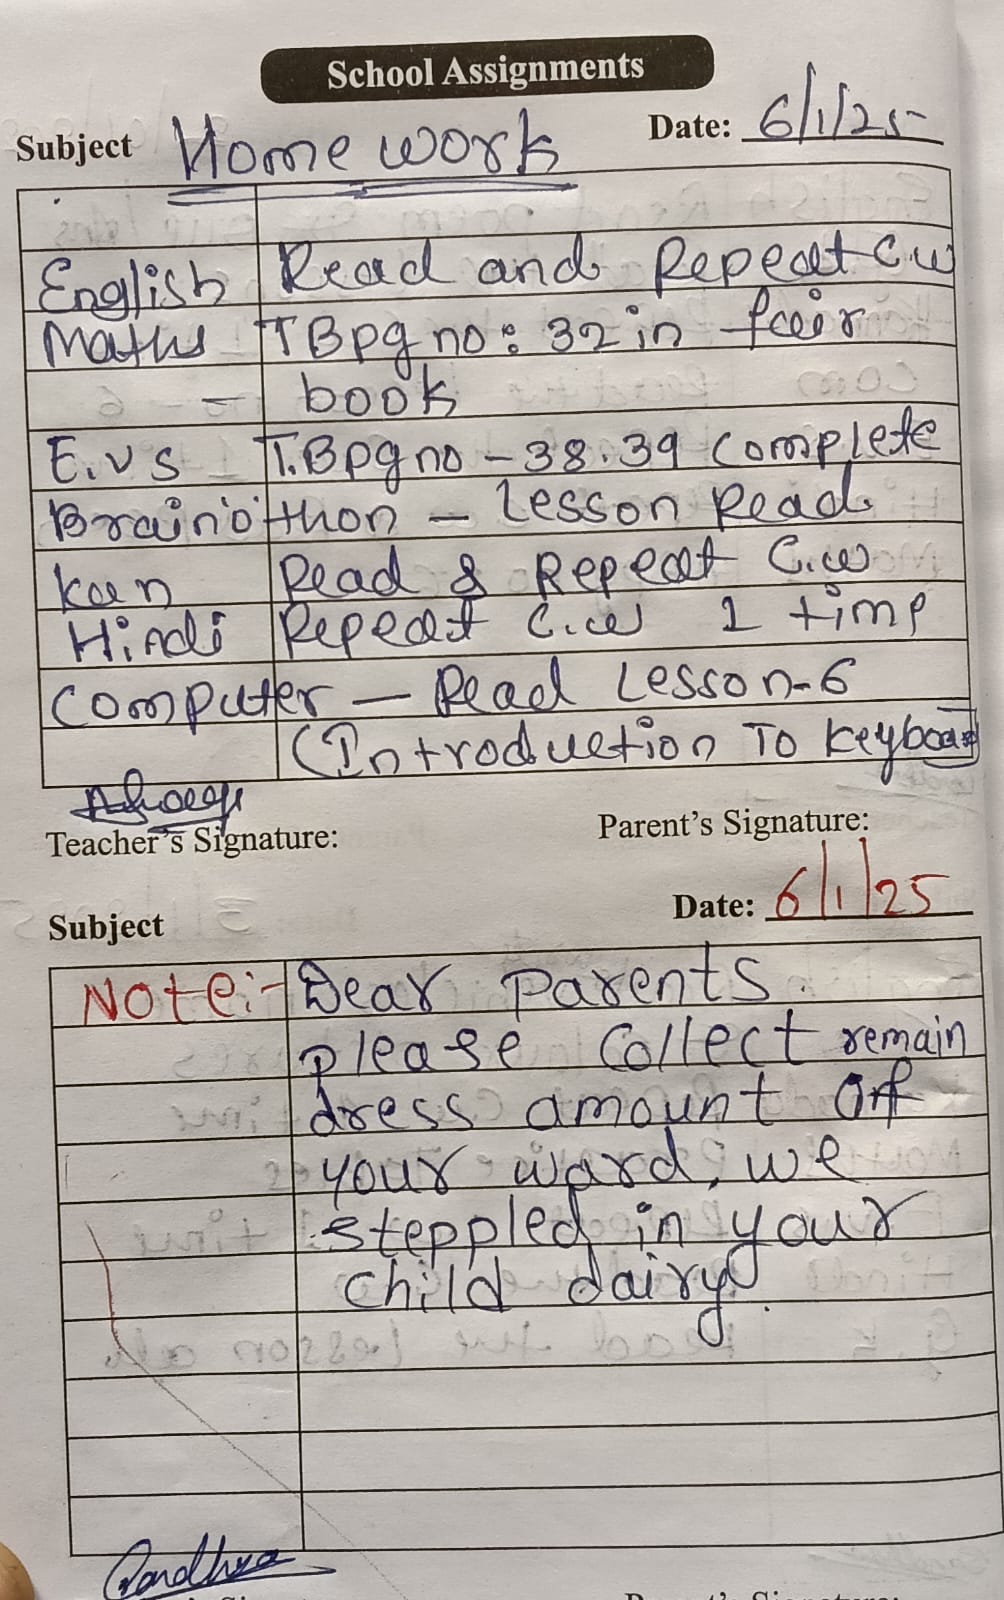 School Assignments
Subject Home work Date: 6/1/25
English Read and Repeat C.w
Maths TB pg no: 32 in fair
book
E.v s T.B pg no - 38.39 complete
Braino'thon - Lesson Read.
kan Read & Repeat C.w
Hindi Repeat C.w 1 time
Computer - Read Lesson-6
(Introduction To keyboard
Teacher's Signature: Parent's Signature:
Subject Date: 6/1/25
Note:- Dear Parents.
please collect remain
dress amount of
your ward, we
steppled in your
child dairy.